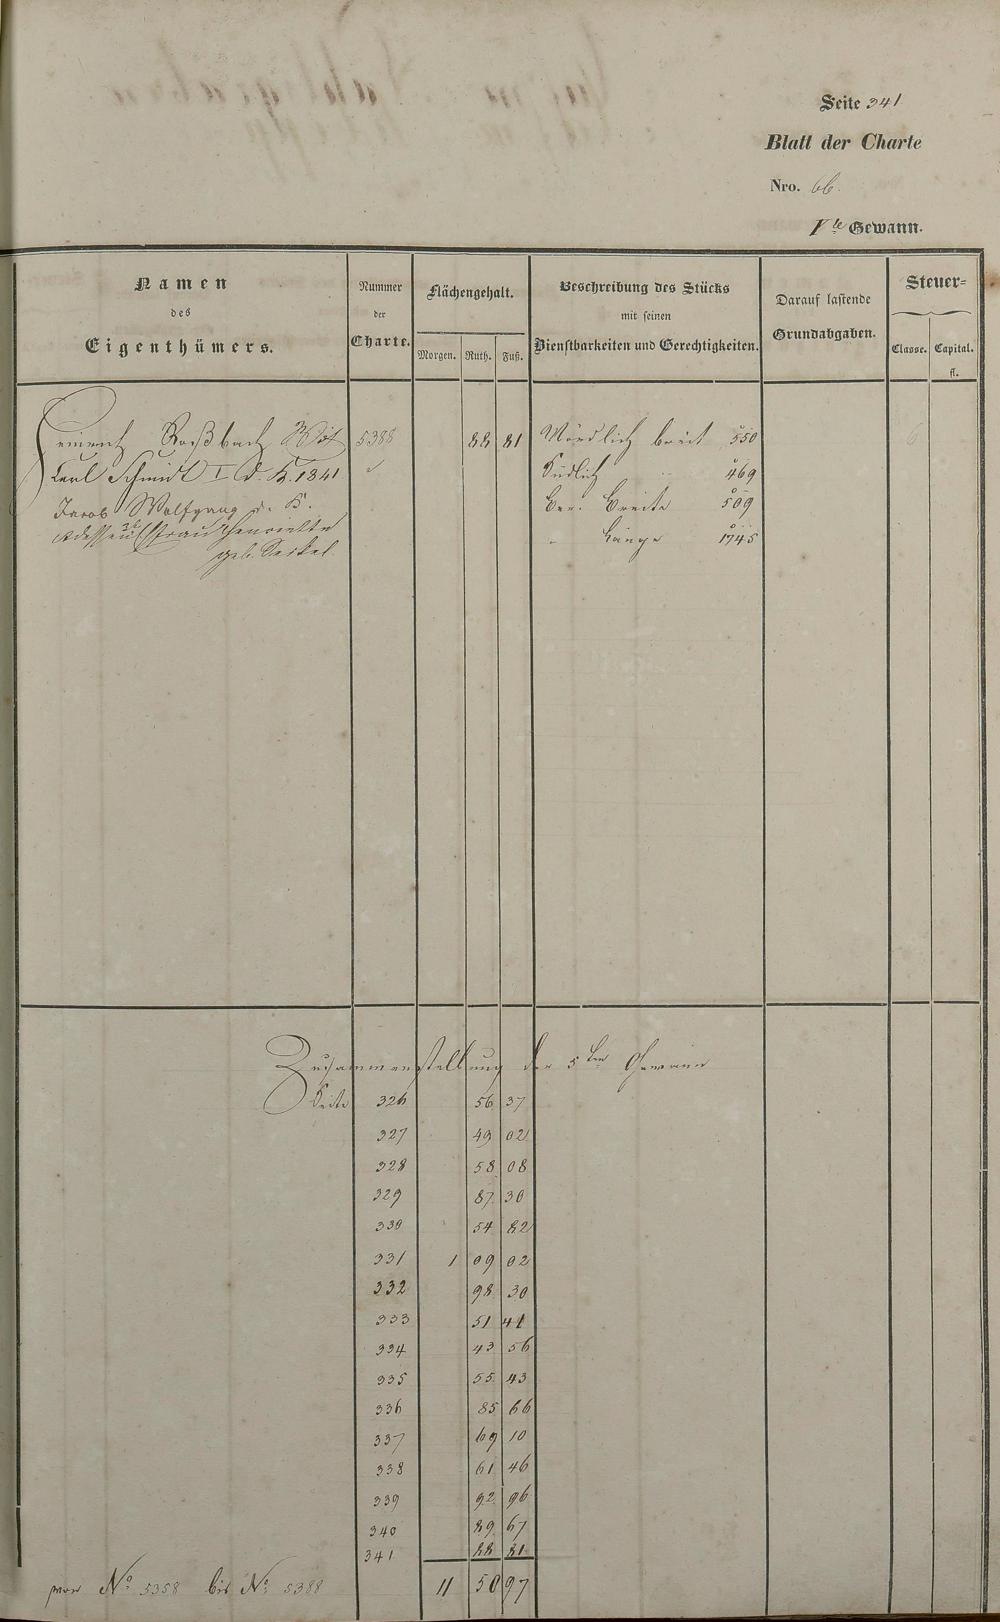 Seite 341
Blatt der Charte
Nro. 66.
Vte Gewann.
Namen des Eigenthümers.
Nummer der Charte.
Flächengehalt.
Morgen. Ruth. Fuß.
Beschreibung des Stücks mit seinen Dienstbarkeiten und Gerechtigkeiten.
Darauf lastende Grundabgaben.
Steuer=
Classe. Capital. fl.
Heinrich Roßbach 5388 88 81 Nördlich breit 550
Karl Schmidt I d. K. 1841 Südlich 469
Jacob Wolfgang d. K. Ber. Breite 509
dessen Ehefrau Henriette Länge 1745
geb.
Zusammenstellung der 5ten Gewann
Seite 326 56 37
327 49 02
328 58 08
329 87 30
330 54 82
331 1 09 02
332 98 30
333 51 41
334 43 56
335 55 43
336 85 66
337 69 10
338 61 46
339 92 96
340 89 67
341 88 81
von No. 5358 bis No. 5388 11 50 97